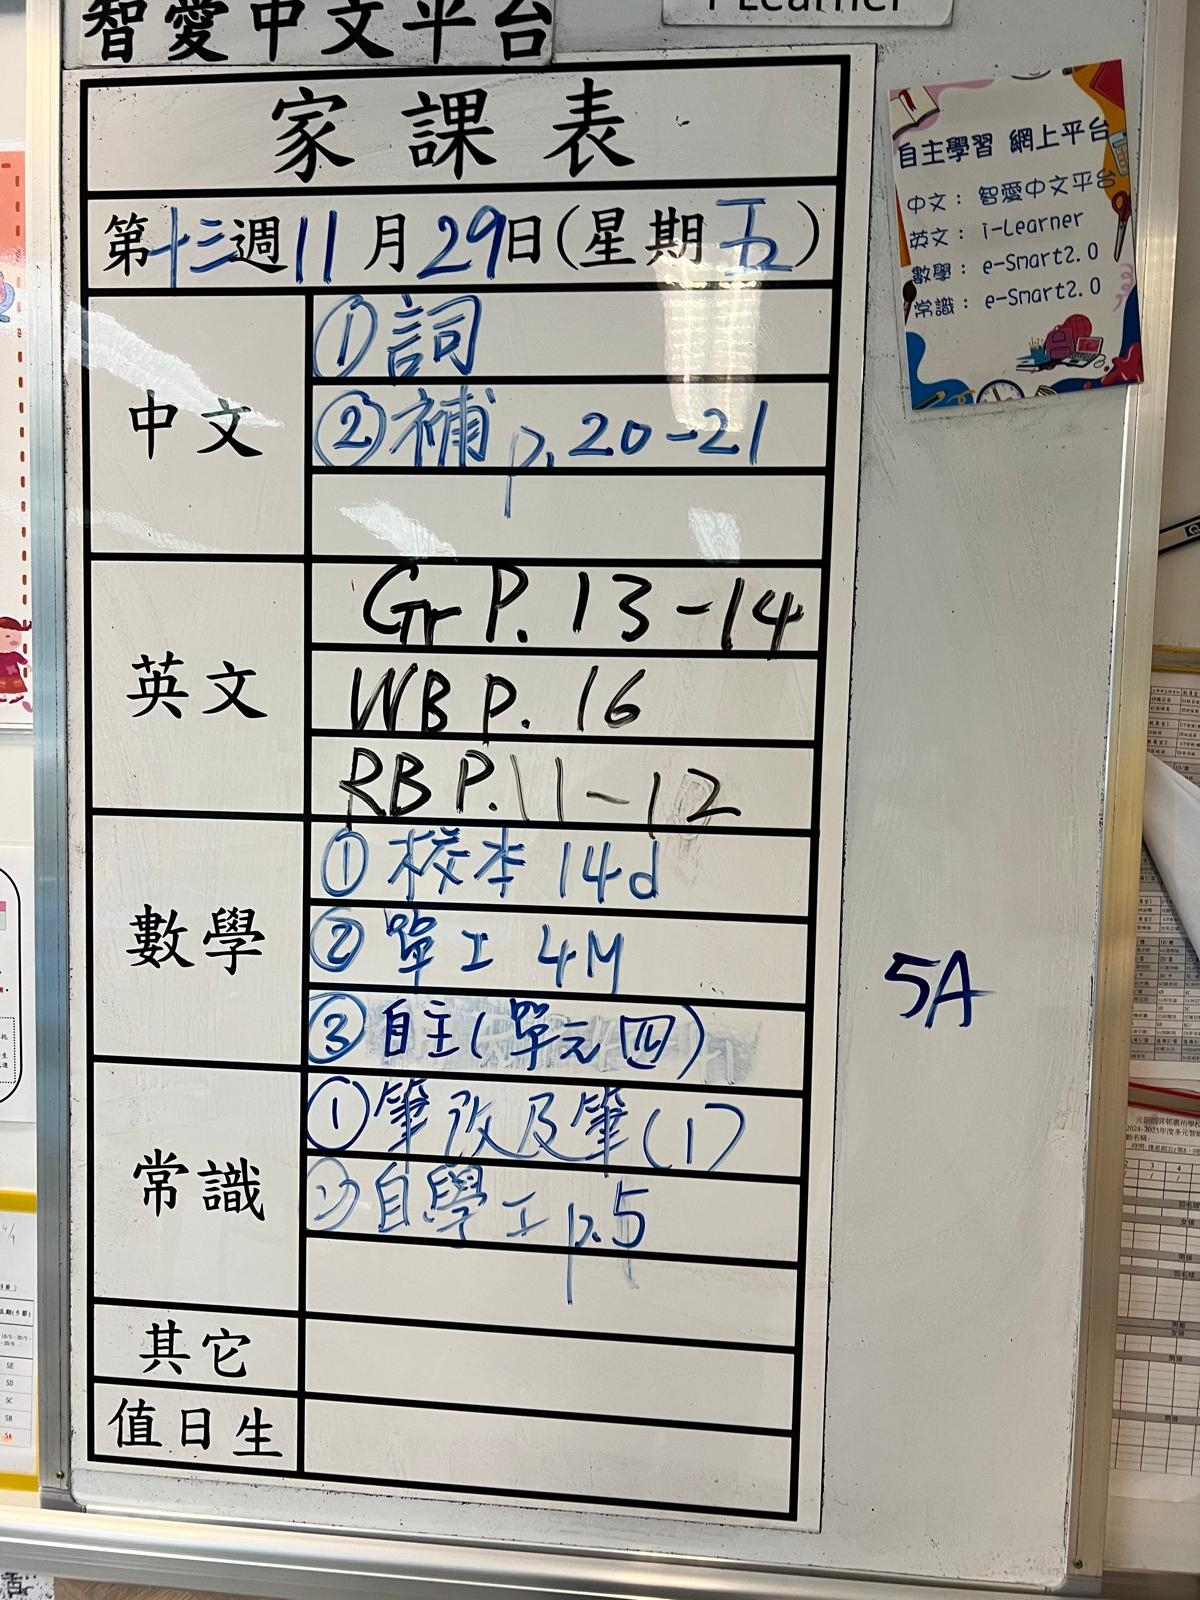 智愛中文平台
i-Learner
家課表
第十三週11月29日(星期五)
中文
①詞
②補 p.20-21
英文
Gr P. 13-14
WB P. 16
RB P. 11-12
數學
①校本 14d
②單工 4M
③自主(單元四)
常識
①筆改及筆(1)
②自學工 p.5
其它
值日生
自主學習 網上平台
中文： 智愛中文平台
英文： i-Learner
數學： e-Smart2.0
常識： e-Smart2.0
5A
5E
5D
5C
5B
5A